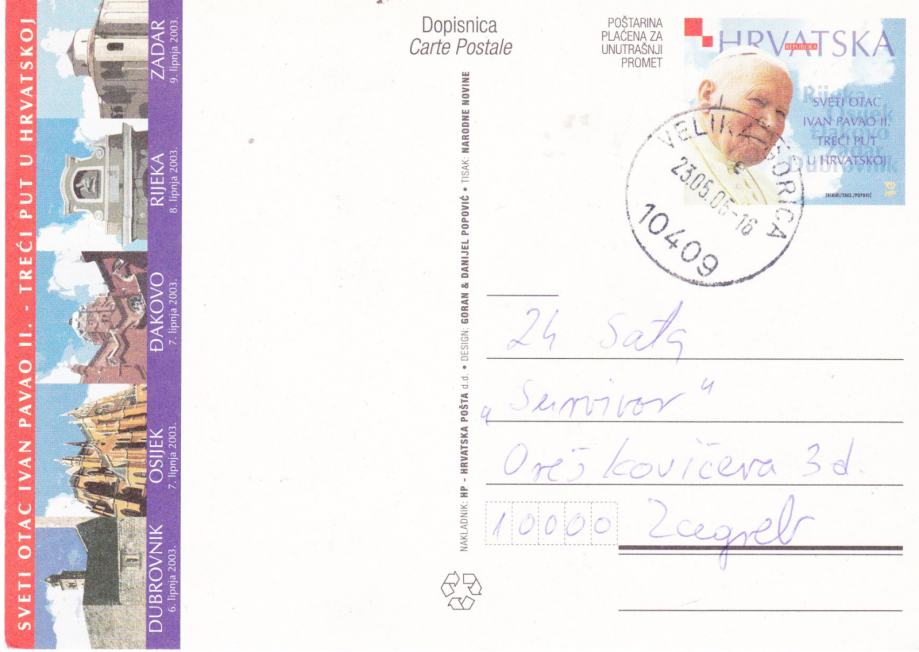 SVETI OTAC IVAN PAVAO II. - TREĆI PUT U HRVATSKOJ
ZADAR
9. lipnja 2003.
RIJEKA
8. lipnja 2003.
ĐAKOVO
7. lipnja 2003.
OSIJEK
7. lipnja 2003.
DUBROVNIK
6. lipnja 2003.
Dopisnica
Carte Postale
NAKLADNIK: HP - HRVATSKA POŠTA d.d. • DESIGN: GORAN & DANIJEL POPOVIĆ • TISAK: NARODNE NOVINE
POŠTARINA
PLAĆENA ZA
UNUTRAŠNJI
PROMET
REPUBLIKA
HRVATSKA
Rijeka
Đakovo
Zadar
Dubrovnik
SVETI OTAC
IVAN PAVAO II.
TREĆI PUT
U HRVATSKOJ
VELIKA GORICA
23.05.05-16
10409
24 Sata
„Survivor"
Oreškovićeva 3d.
10000 Zagreb